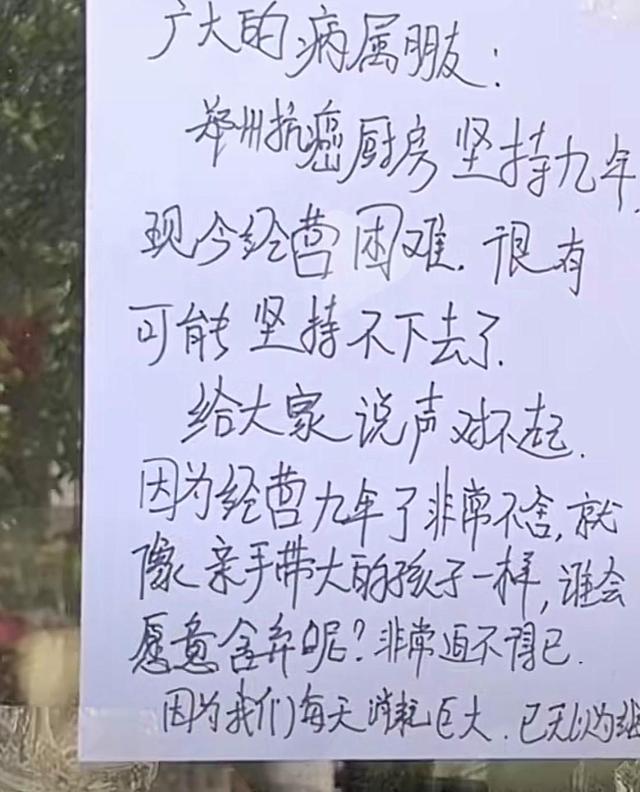 广大的病属朋友:
郑州抗癌厨房坚持九年.
现今经营困难.很有
可能坚持不下去了.
给大家说声对不起.
因为经营九年了非常不舍,就
像亲手带大的孩子一样,谁会
愿意舍弃呢?非常迫不得已.
因为我们每天消耗巨大.已无以为继